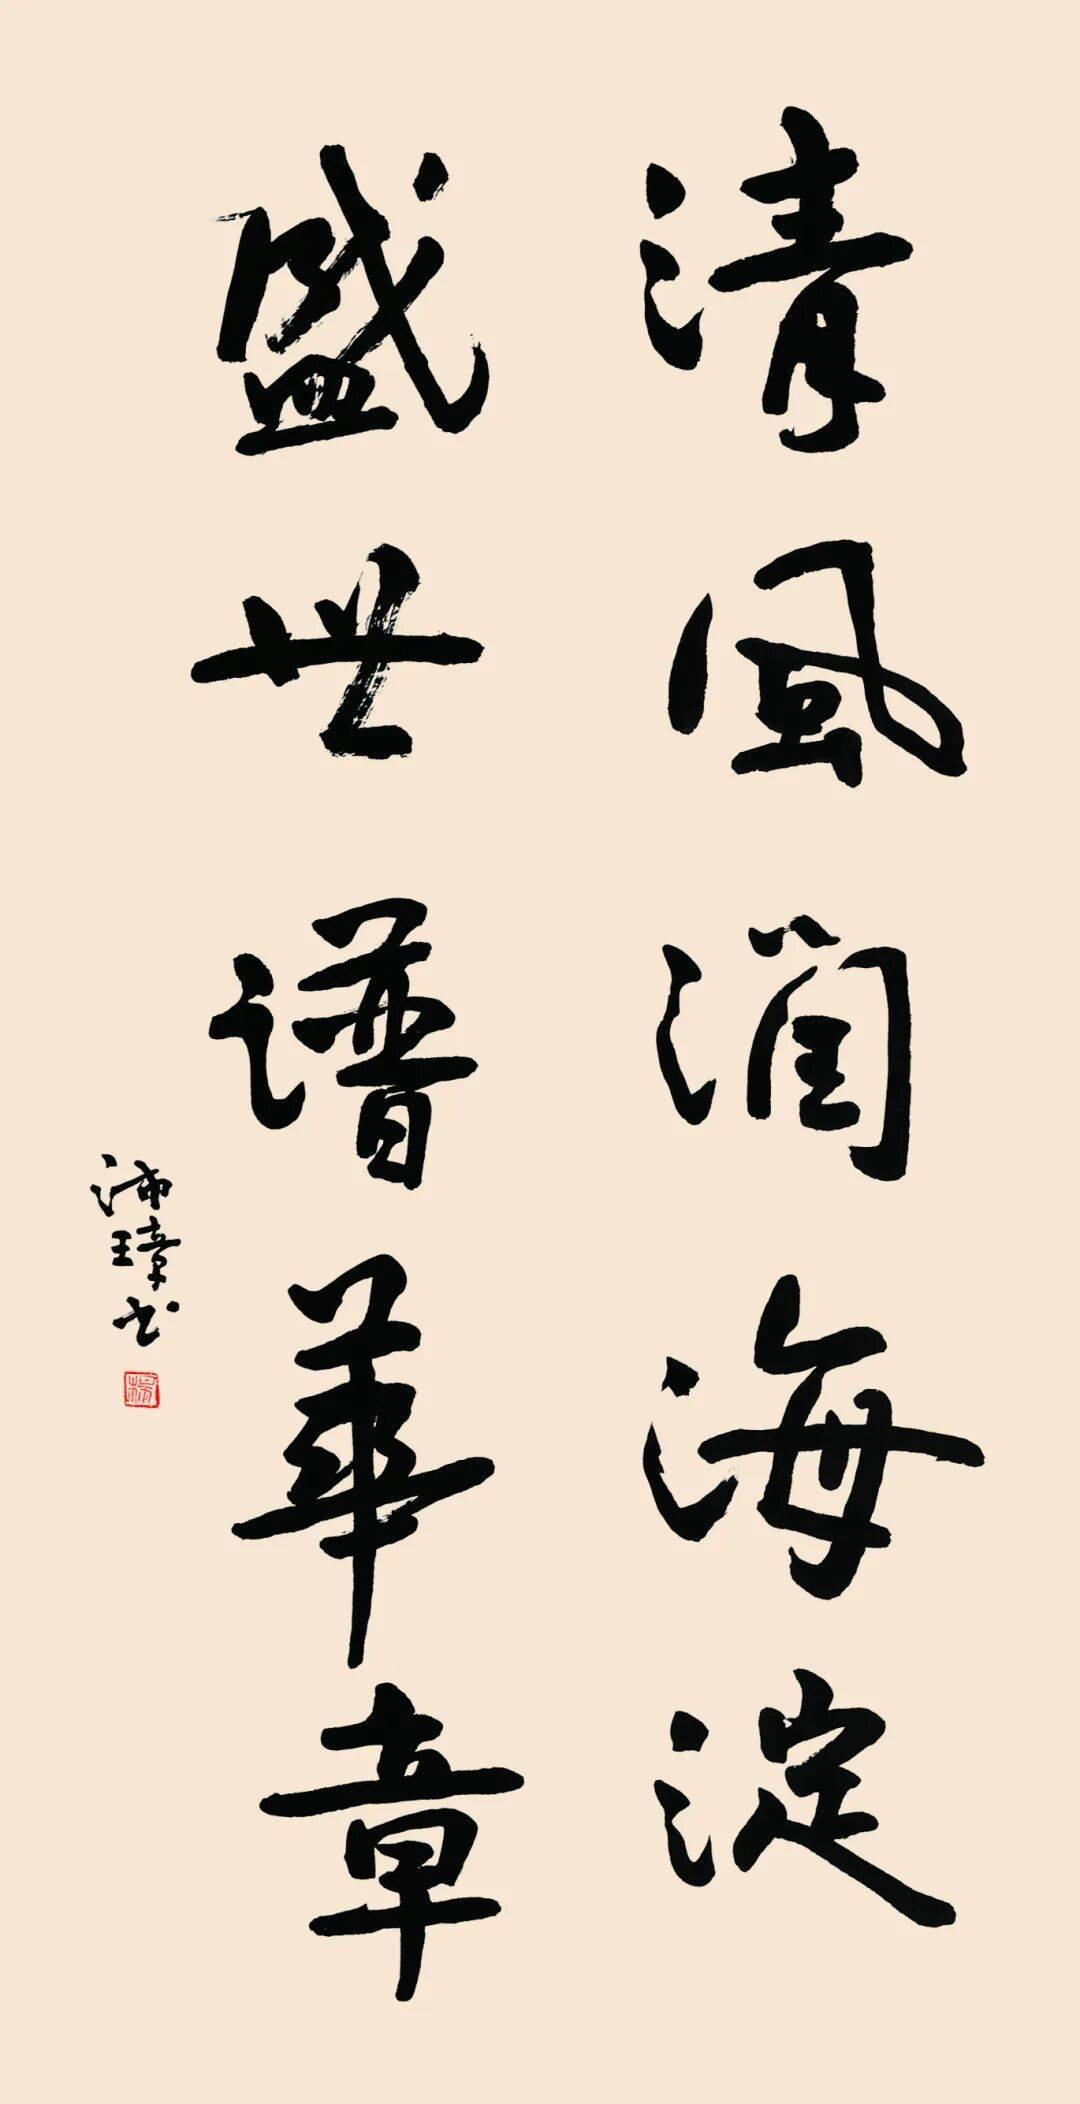 清風潤海淀
盛世譜華章
沛璋书
楊